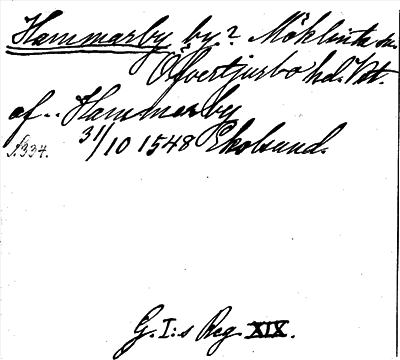 Hammarby by? Möklinta sn.
Öfvertjurbo hd. Vst.
af.. Hammarby
S. 334. 31/10 1548 Ekolsund.
G. I:s Reg. XIX.